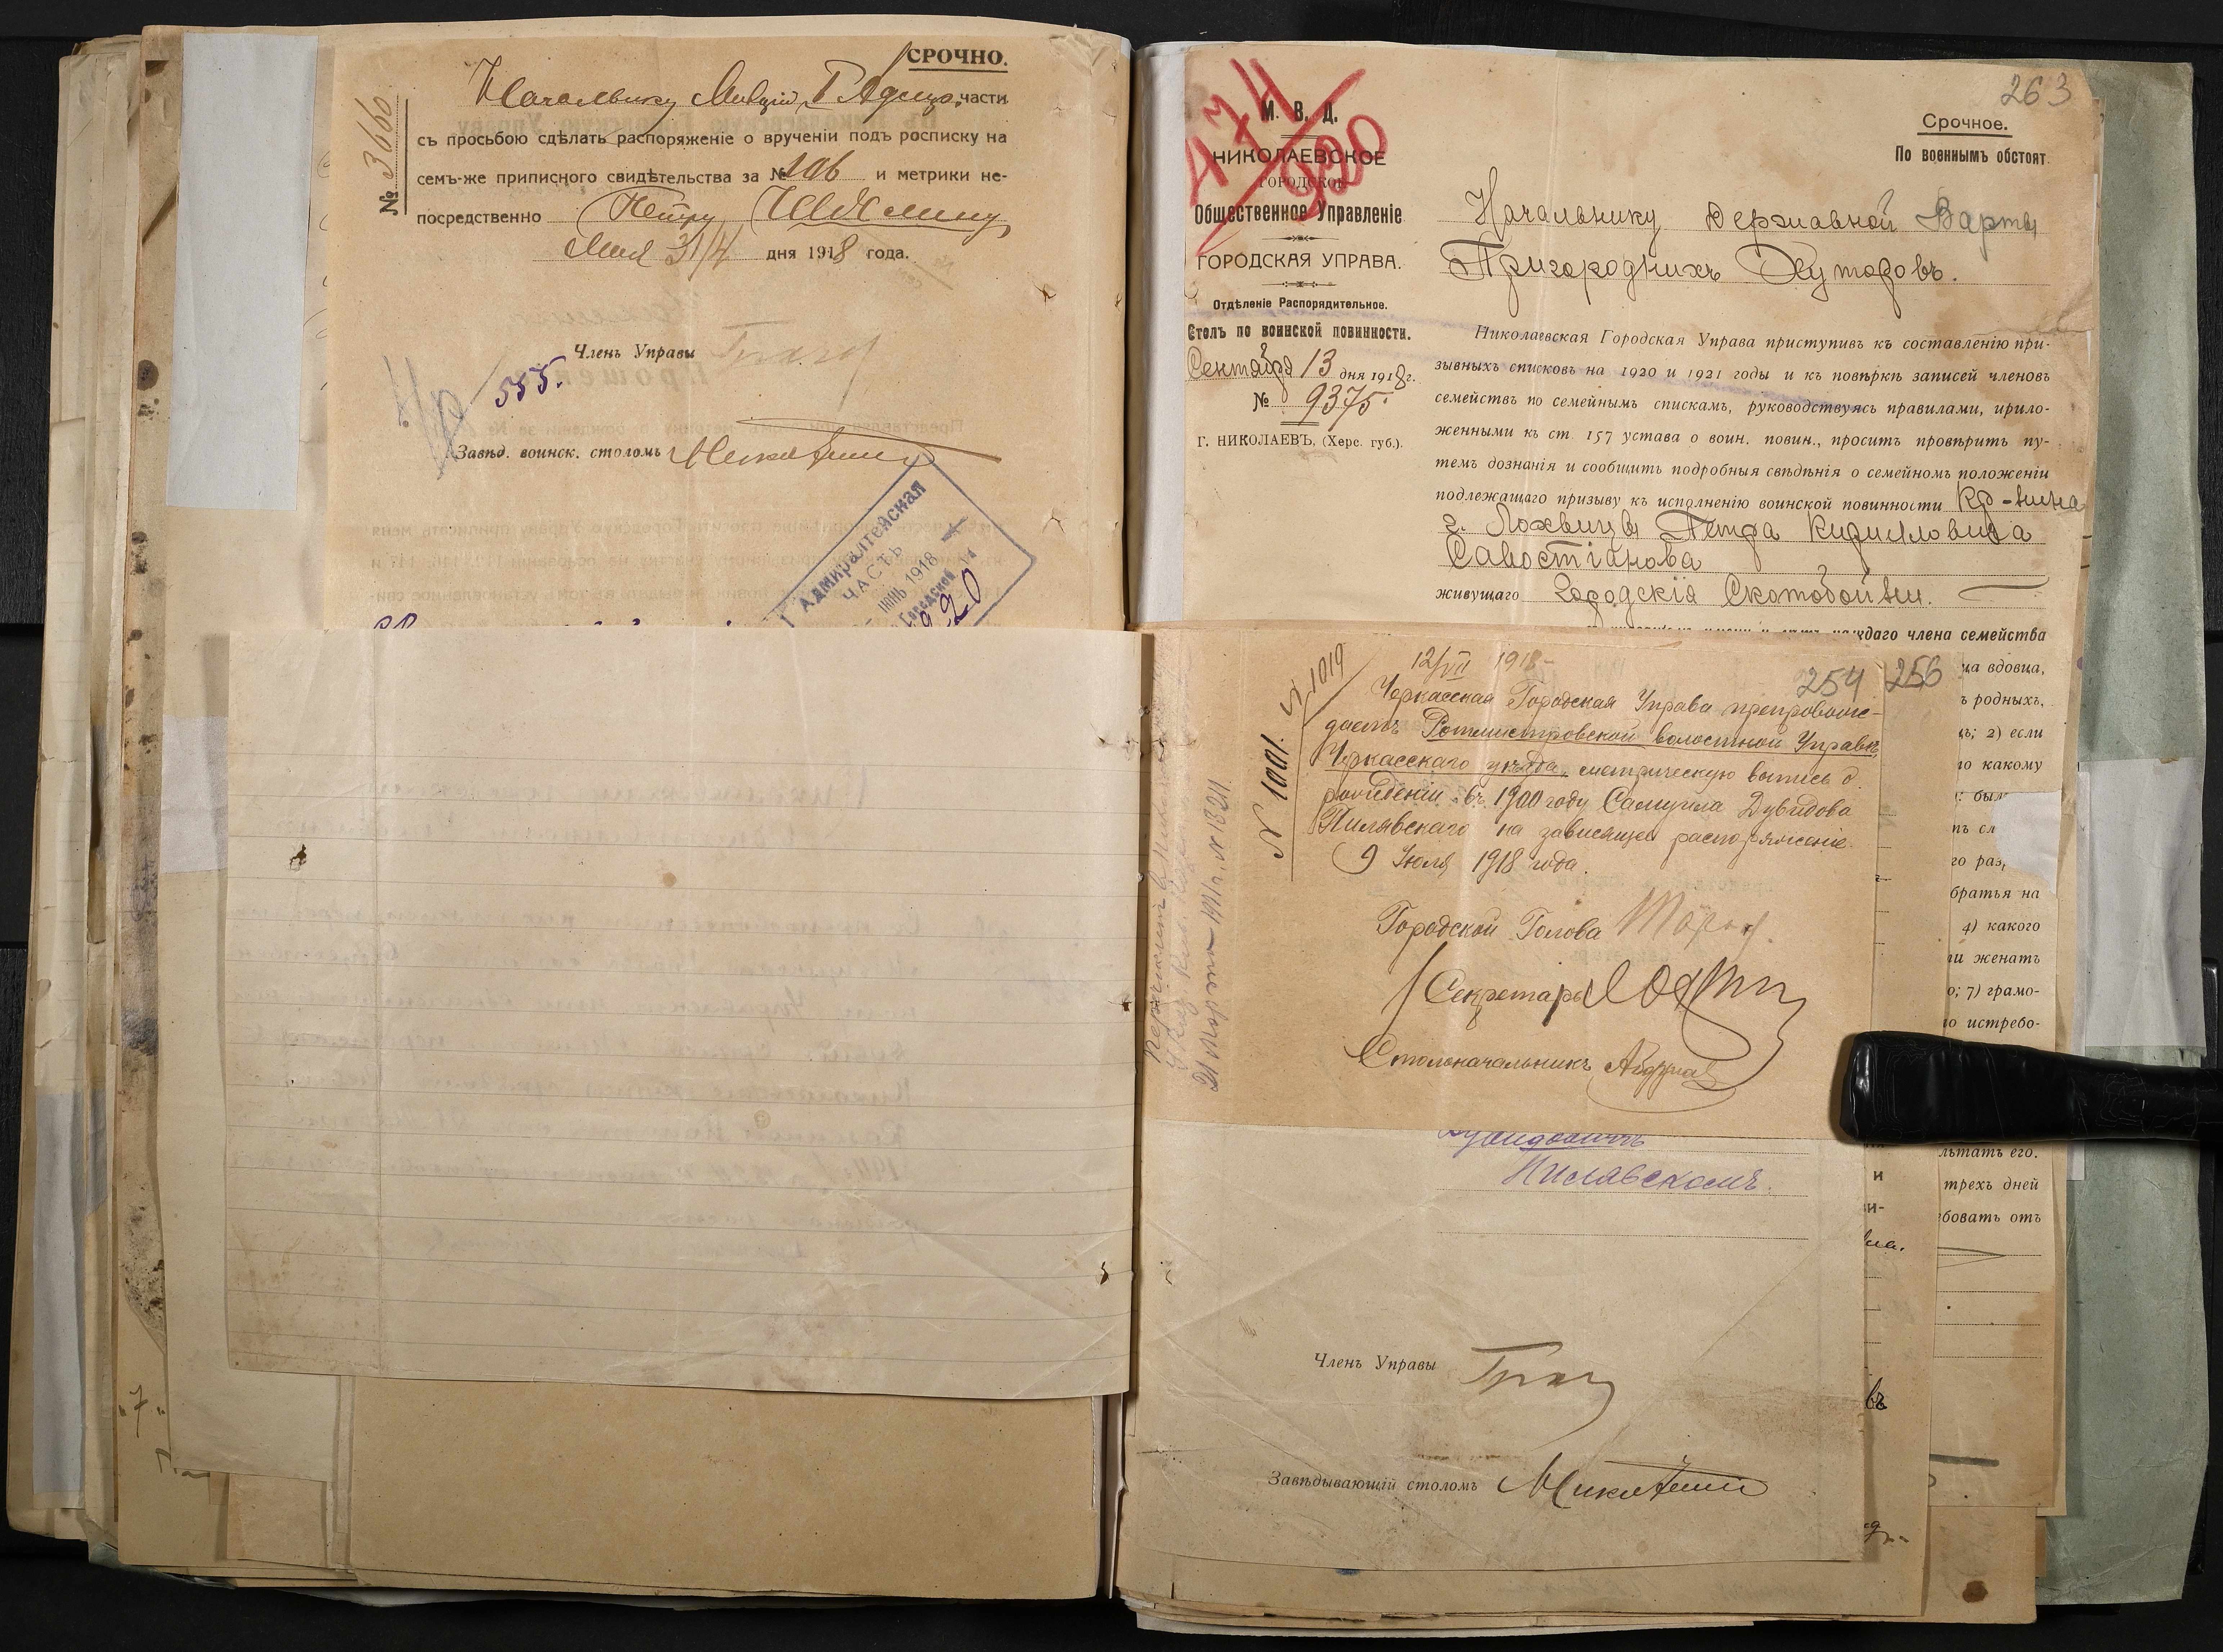 СРОЧНО.
№ 3660.
Начальнику Милиціи, I Адмир. части
съ просьбою сдѣлать распоряженіе о врученіи подъ росписку на
семъ-же приписного свидѣтельства за № 106 и метрики не-
посредственно Петру
Мая 31/4 дня 1918 года.
Членъ Управы
555.
Завѣд. воинск. столомъ
Адмиралтейская
ЧАСТЬ
ІЮНЬ 1918
Городской
920
263
474
920
М. В. Д.
НИКОЛАЕВСКОЕ
ГОРОДСКОЕ
Общественное Управленіе
ГОРОДСКАЯ УПРАВА.
Отдѣленіе Распорядительное.
Столъ по воинской повинности.
Сентября 13 дня 1918 г.
№ 9375
Г. НИКОЛАЕВЪ, (Херс. губ.).
Срочное.
По военнымъ обстоят.
Начальнику Державной Варты
Пригородныхъ Хуторовъ.
Николаевская Городская Управа приступивъ къ составленію при-
зывныхъ списковъ на 1920 и 1921 годы и къ повѣркѣ записей членовъ
семействъ по семейнымъ спискамъ, руководствуясь правилами, прило-
женными къ ст 157 устава о воин. повин., проситъ провѣрить пу-
темъ дознанія и сообщить подробныя свѣдѣнія о семейномъ положеніи
подлежащаго призыву къ исполненію воинской повинности Кр-нина
г. Лохвицы Петра Кирилловича
Савостіанова
живущаго Городскія Скотобойни.
каждаго члена семейства
ца вдовца,
ъ родныхъ,
2) если
ю какому
был
го раз
братья на
4) какого
ли женатъ
о; 7) грамо-
ю истребо-
льтатъ его.
трехъ дней
ебовать отъ
256
254
12/VII 1918
1019
№ 1001.
Черкасская Городская Управа препровож-
даетъ Ротмистровской волостной Управѣ
Черкасскаго уѣзда, метрическую выпись о
рожденіи въ 1900 году Самуила Дувидова
Пилявскаго на зависящее распоряженіе.
9 Іюля 1918 года.
Городской Голова
Секретарь
Столоначальникъ
Дувидовичъ
Пилявскомъ.
Членъ Управы
Завѣдывающій столомъ